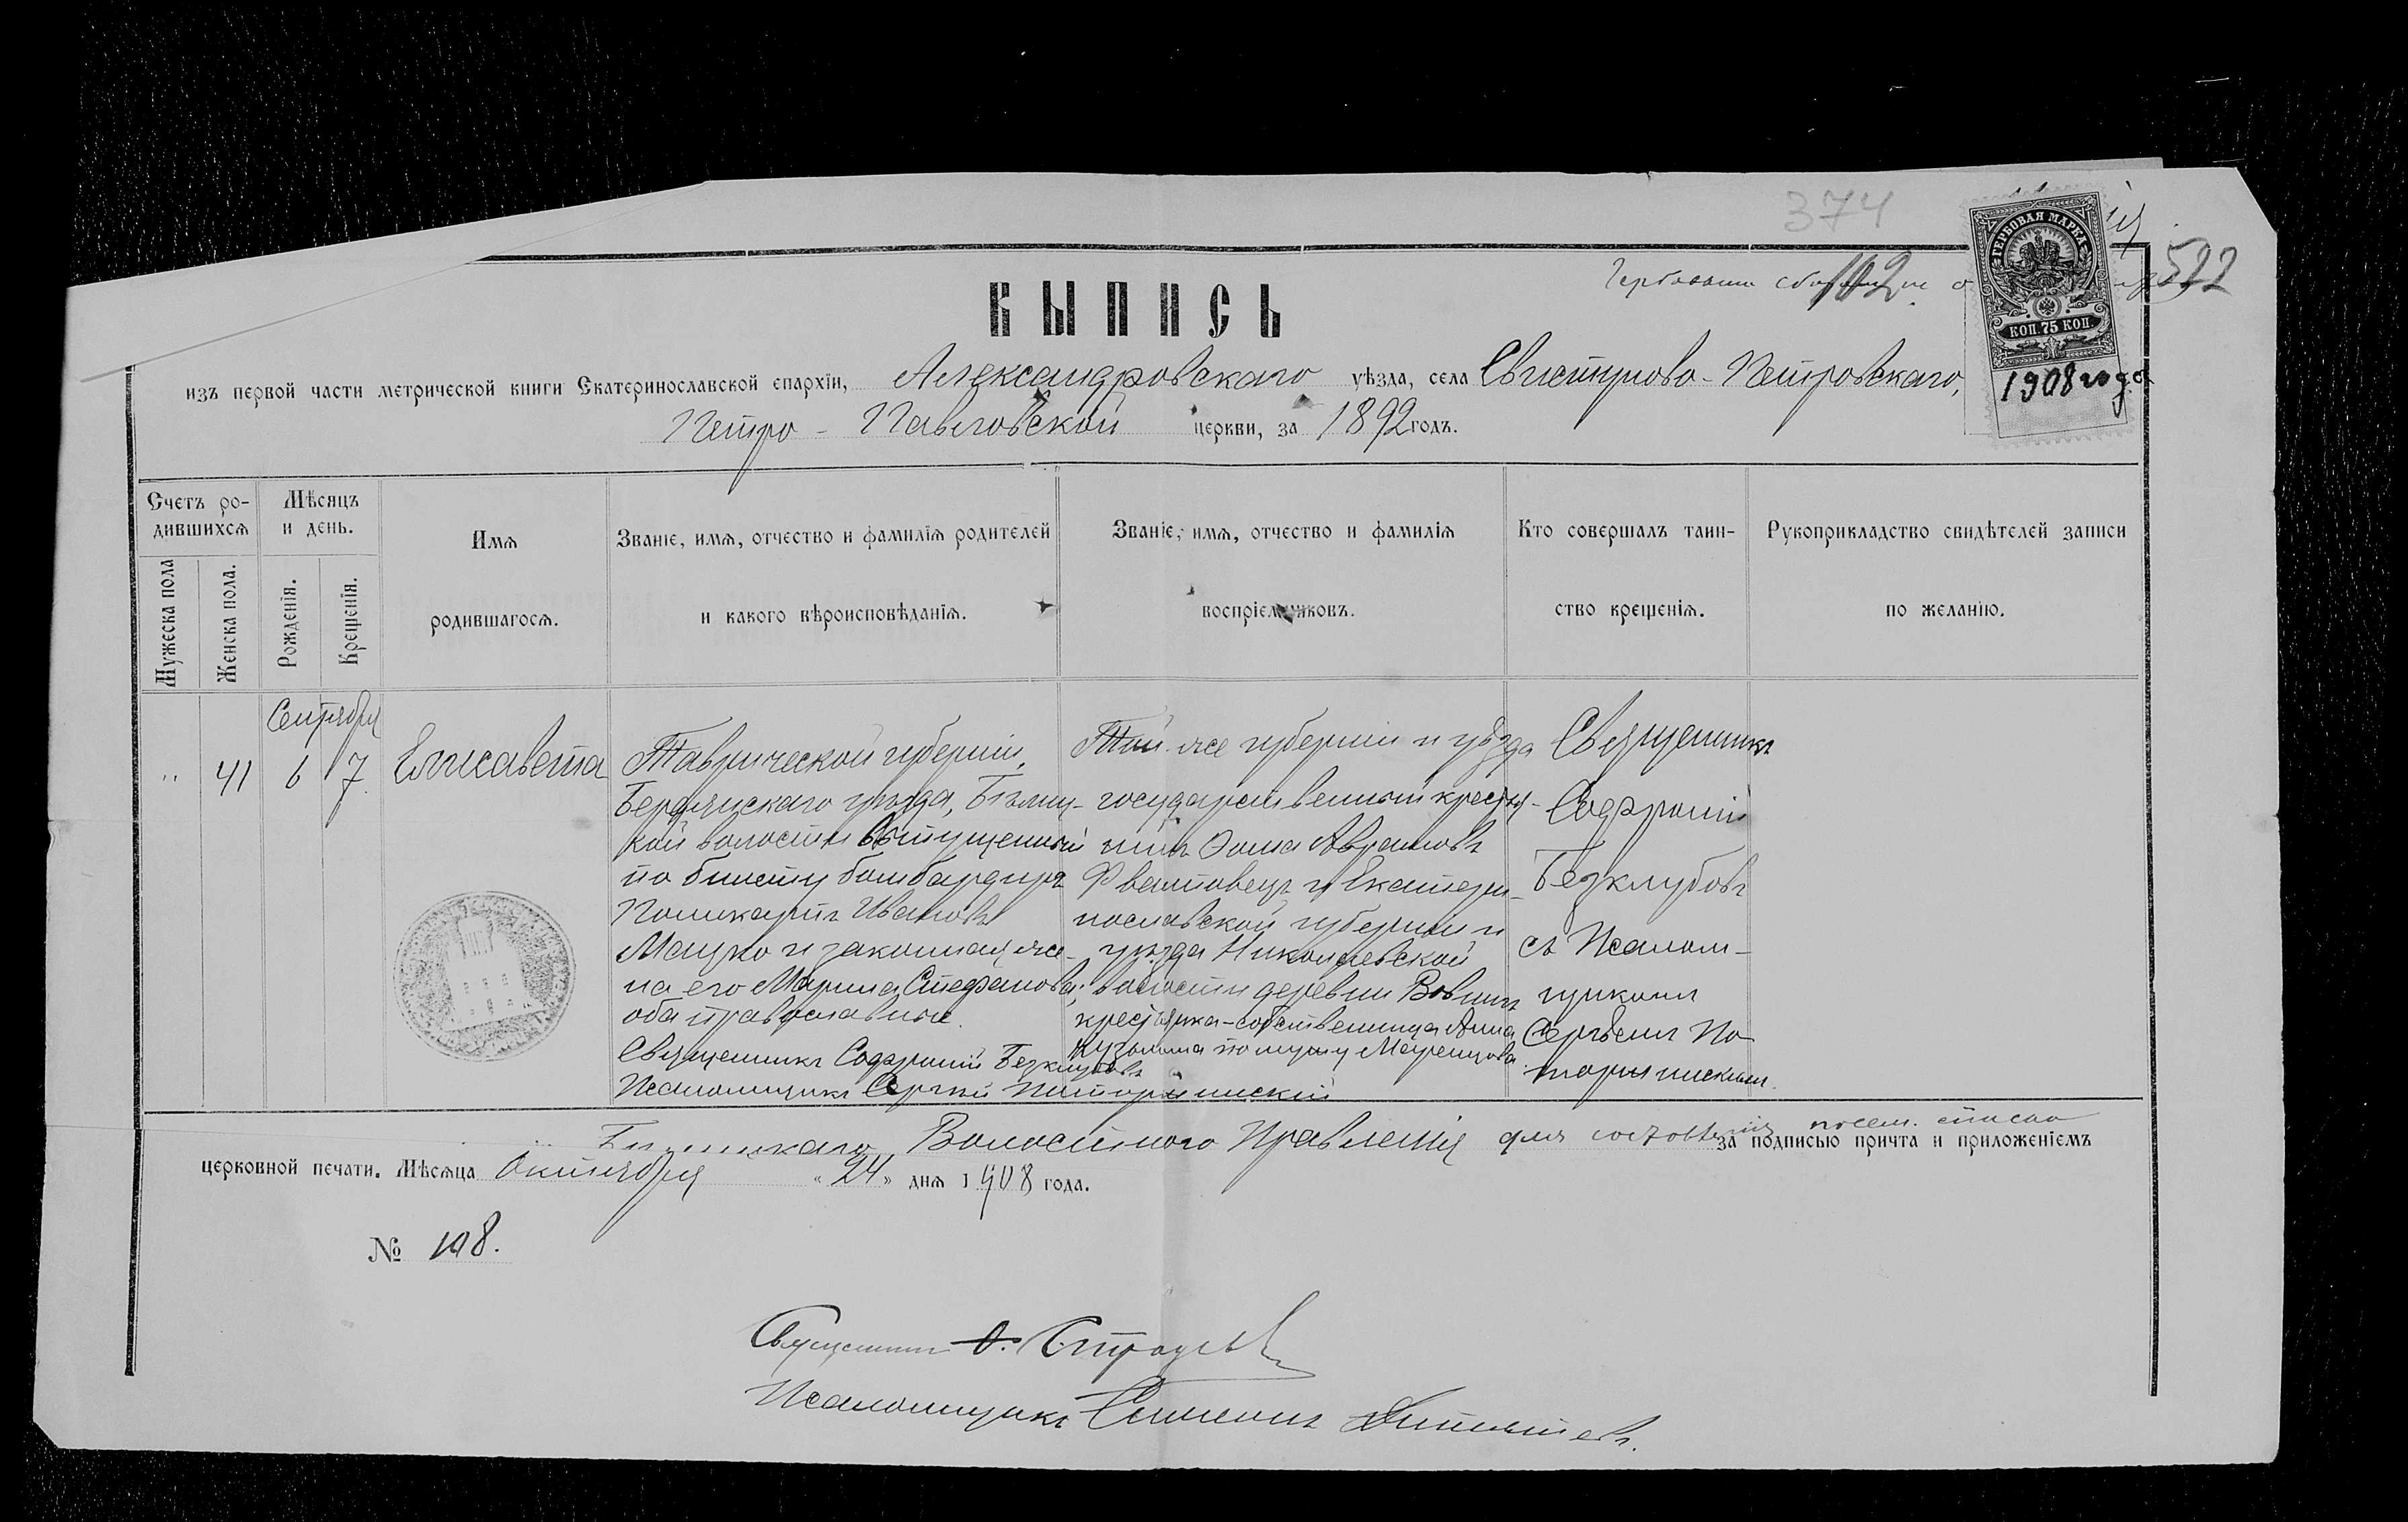 374
522
102
ГЕРБОВАЯ МАРКА
КОП. 75 КОП.
1908 года
ВЫПИСЬ
изъ первой части метрической книги Екатеринославской епархіи, Александровскаго уѣзда, села Свистуново-Петровскаго,
Петро-Павловской церкви, за 1892 годъ.
Счетъ ро-
дившихся
Мужеска пола
Женска пола.
Мѣсяцъ
и день.
Рожденія.
Крещенія.
Имя
родившагося.
Званіе, имя, отчество и фамилія родителей
и какого вѣроисповѣданія.
Званіе, имя, отчество и фамилія
воспріемниковъ.
Кто совершалъ таин-
ство крещенія.
Рукоприкладство свидѣтелей записи
по желанію.
Сентября
" 41 6 7
Елисавета
Таврической губерніи,
Бердянскаго уѣзда,
кой волости выпущенный
по билету бомбардиръ
Поликарпъ Ивановъ
Мацко и законная же-
на его Марина Стефанова,
оба православные.
Священникъ Софроній Безклубовъ
Псаломщикъ Сергѣй
Той-же губерніи и уѣзда
государственный кресть-
янинъ Ѳома Аврамовъ
и Екатери-
нославской губерніи и
уѣзда Николаевской
волости деревни
крестьянка-собственница Анна
Кузьмина по мужу
Священникъ
Софроній
Безклубовъ
съ Псалом-
щикомъ
Сергѣемъ По-
Волостного Правленія для за подписью причта и приложеніемъ
церковной печати. Мѣсяца Октября "24" дня 1908 года.
№ 108.
Священникъ
Псаломщикъ Симеонъ